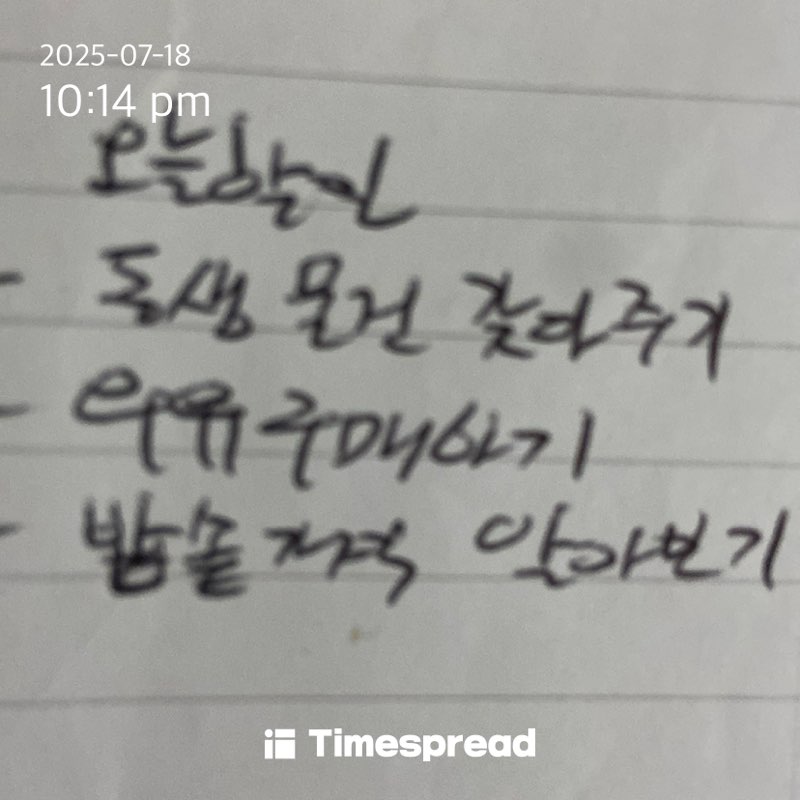 2025-07-18
10:14 pm
오늘할일
- 동생 물건 찾아주기
- 우유 구매하기
- 밥솥 가격 알아보기
Timespread